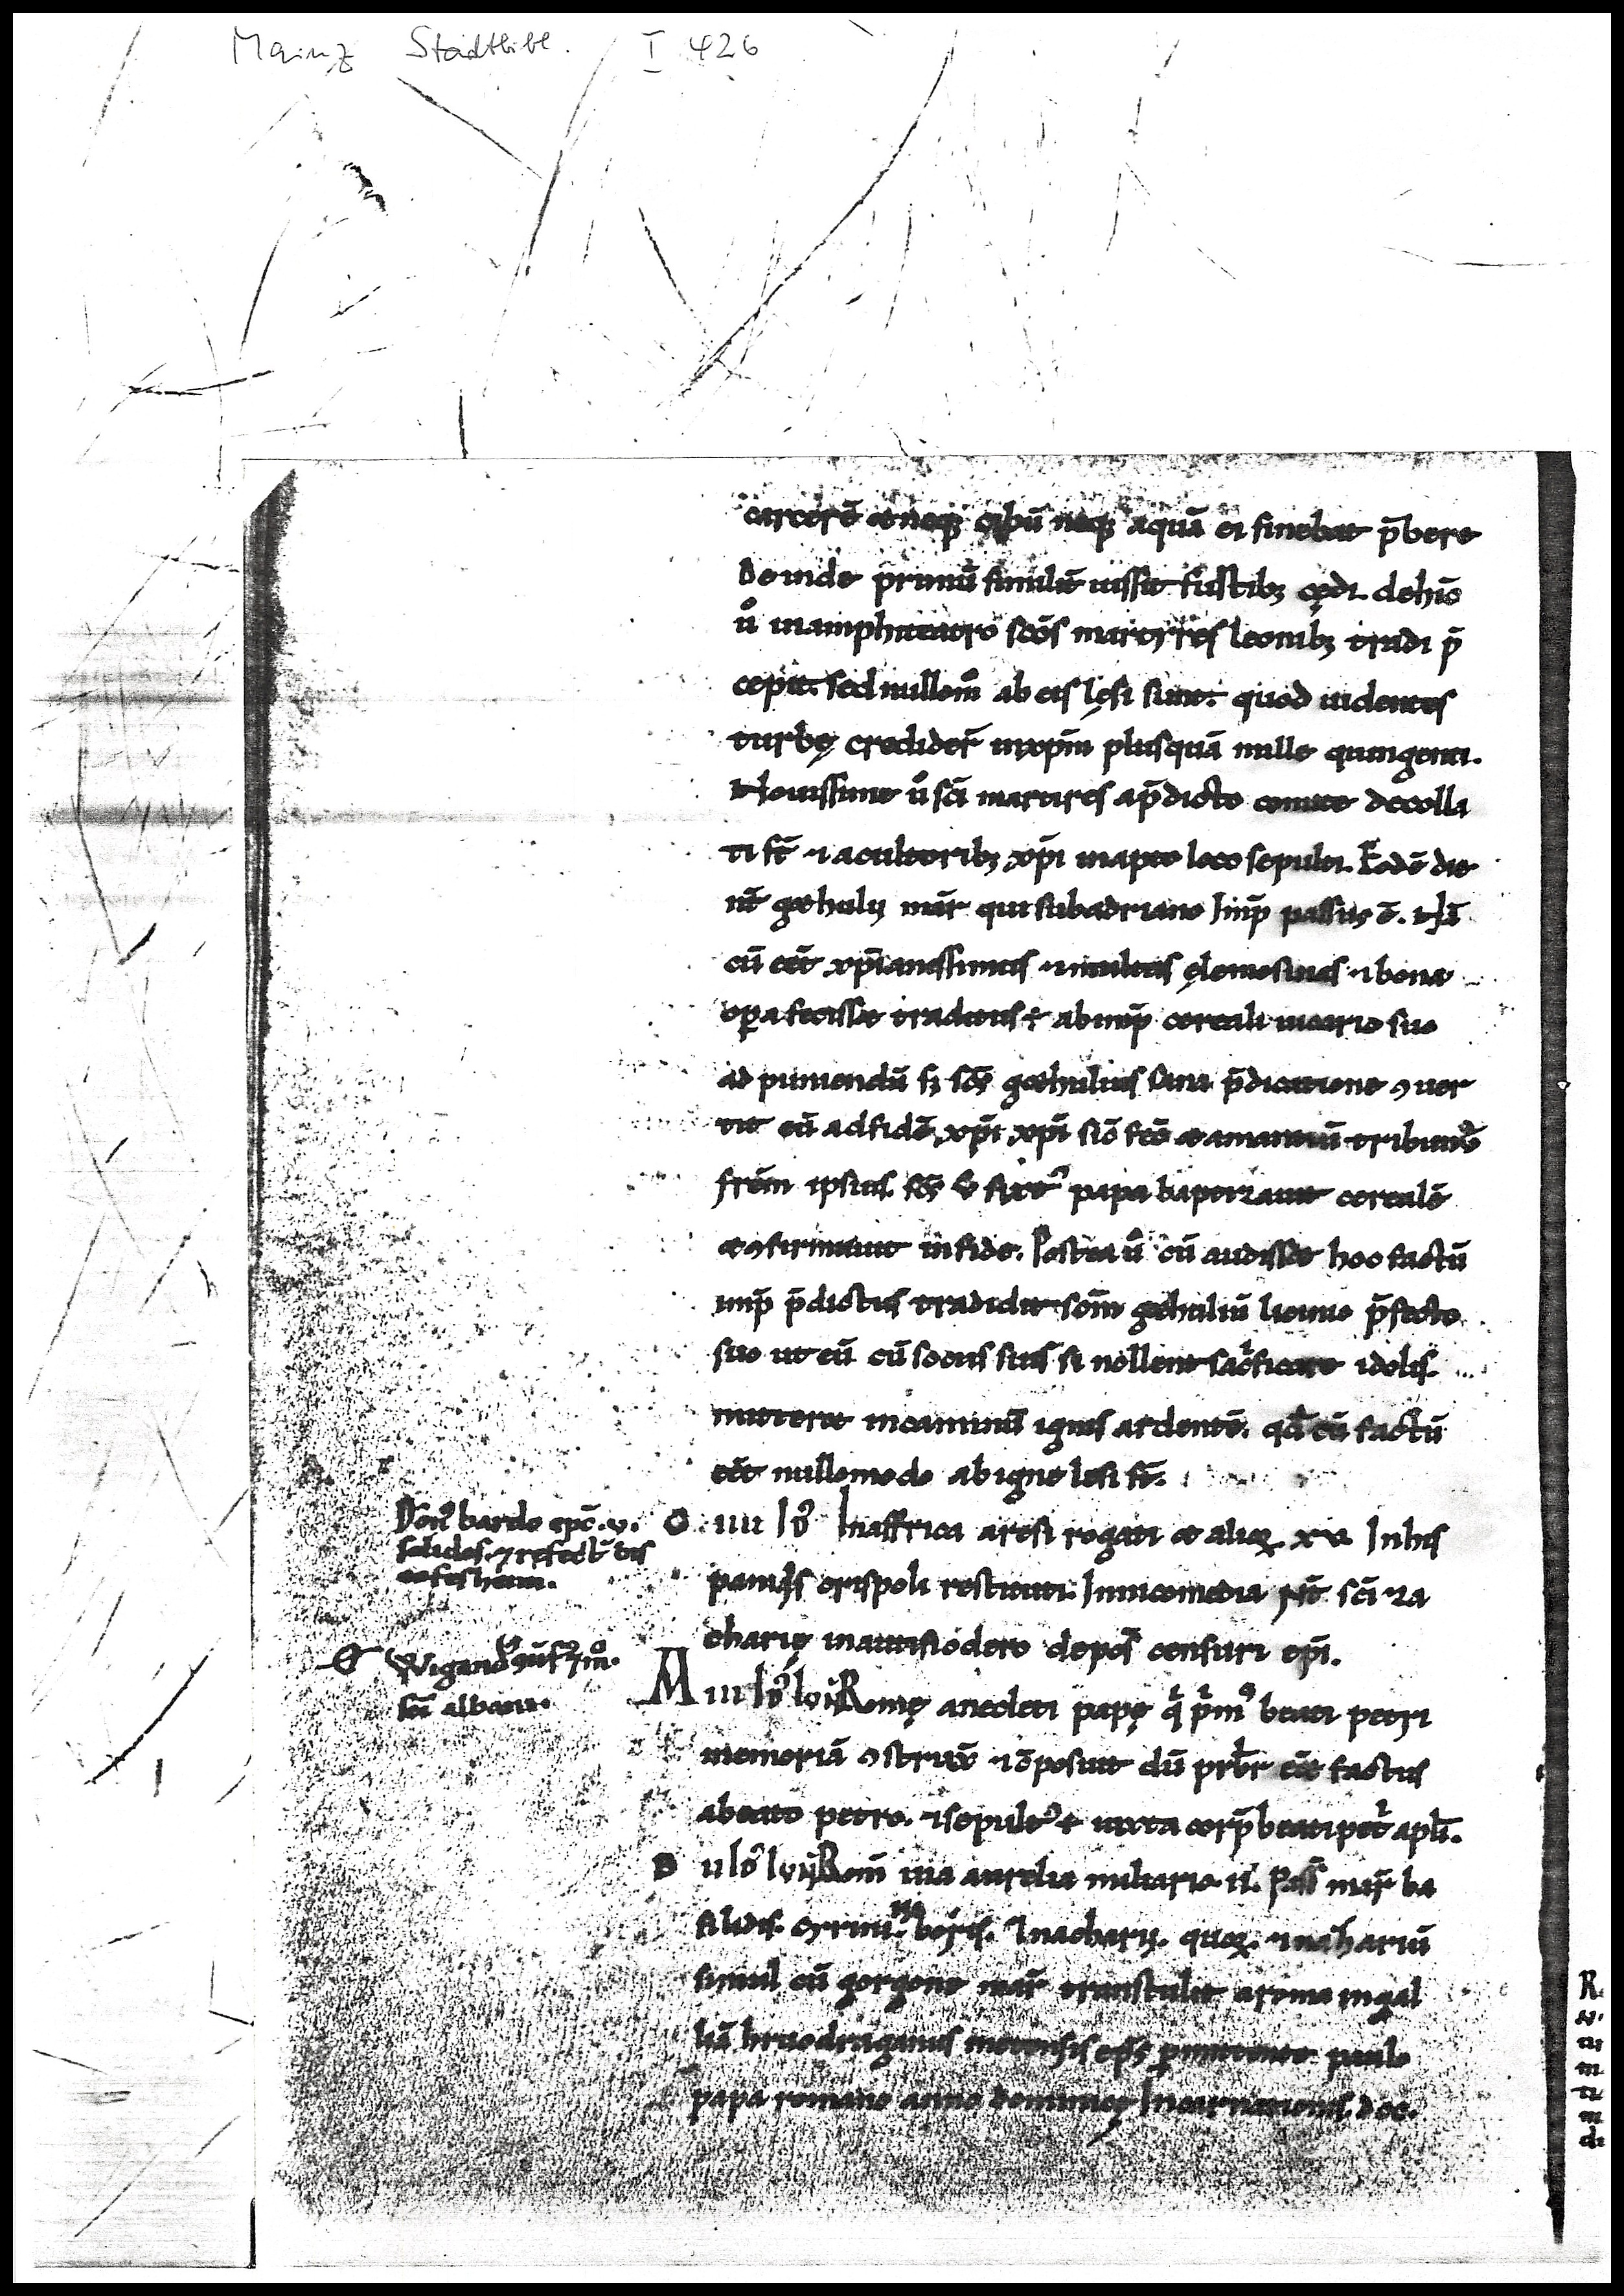 Mainz Stadtbibl. I 426
carcerē et neq; cibū neq; aquā ei sinebat p̄bere
Deinde primū similit̄ iussit fustib; cędi. dehīc
ů in amphiteatro sc̄os martyres leonib; tradi p̄
cepit. sed nullom̊ ab eis lęsi sunt. quod uidentes
turbę credider̄ in xp̄m plusquā mille quingenti.
Nouissime ů sc̄i martires a p̄dicto comite decolla
ti st̄ ⁊ a cultorib; xp̄i in apto loco sepulti. Eodē die
nt̄ gethulij mar̄ qui sub adriano Imp̄ passus ē. Nā
cū eēt xp̄ianissimus ⁊ multas elemosinas ⁊ bona
opa fecisset traditus ÷ ab imp̄ cereali uicario suo
ad puniendū s; sc̄s gethulius sua p̄dicatione ꝯuer
tit eū ad fidē xp̄i
frēm ipsius. papa baptizauit cerealē
et ꝯfirmauit in fide. Postea ů cū audisset hoc factū
imp̄ p̄dictus tradidit sc̄m gethuliū licinio p̄fecto
suo ut eū cū sociis suis si nollent sac̊ficare idolis.
mitteret in caminū ignis ardentē. qd̄ cū factū
eēt nullomodo ab igne lesi st̄.
Don̄ bardo epc̄. v.
solidos ⁊ refect̄
G iiii Id̄ In affrica aresi rogati et alioꝝ xv In his
orispoli restituti. In nicomedia Nt̄ sc̄i za
charię in autisiodero depos̄ censuri ep̄i.
Wigand
sc̄i albani.
A iii Id̄ Romę anacleti papę q̇ p̄m̊ beati petri
memoriā ꝯstrux̄ ⁊ cōposuit dū prb̄r eēt factus
a beato petro. ⁊ sepult᷒ ÷ iuxta corp᷒ beati pet̊ apl̄i.
B ii Id̄ Rom̄ uia aurelia miliario v. Pass̄ mar̄ ba
silidis. cyrini. naboris. Nazarij. quoꝝ. ⁊ nazariū
simul cū gorgonio mar̄ transtulit a roma in gal
liā hruodrigangus metensis ep̄s pmittente paulo
papa romano anno dominicę Incarnationis. dcc.